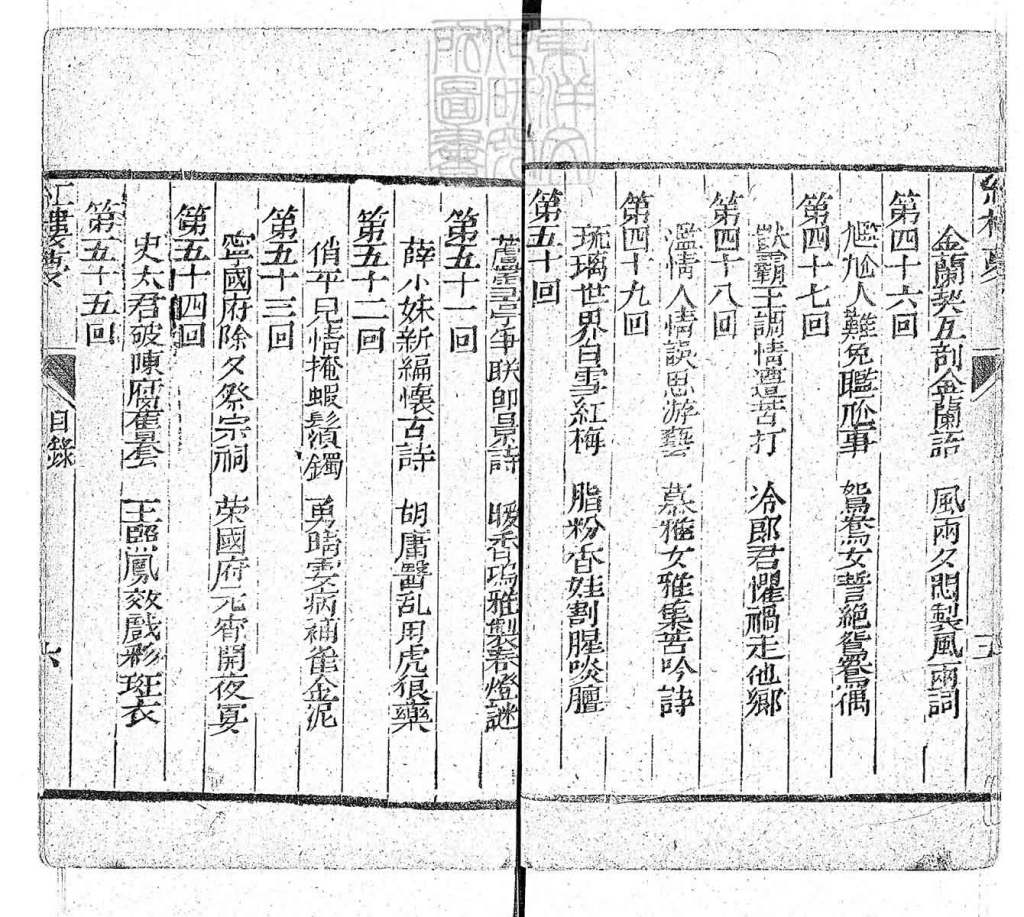 金蘭契互剖金蘭語　風雨夕悶製風雨詞
第四十六回
尷尬人難免尷尬事　鴛鴦女誓絕鴛鴦偶
第四十七回
獃霸王調情遭苦打　冷郎君懼禍走他鄉
第四十八回
濫情人情誤思游藝　慕雅女雅集苦吟詩
第四十九回
琉璃世界白雪紅梅　脂粉香娃割腥啖膻
第五十回
蘆雪亭争联即景詩　暖香塢雅製春燈謎
第五十一回
薛小妹新編懷古詩　胡庸醫乱用虎狼藥
第五十二回
俏平兒情掩蝦鬚鐲　勇晴雯病補雀金泥
第五十三回
寧國府除夕祭宗祠　荣國府元宵開夜宴
第五十四回
史太君破陳腐舊套　王熙鳳效戲彩斑衣
第五十五回
紅樓夢　目錄　六